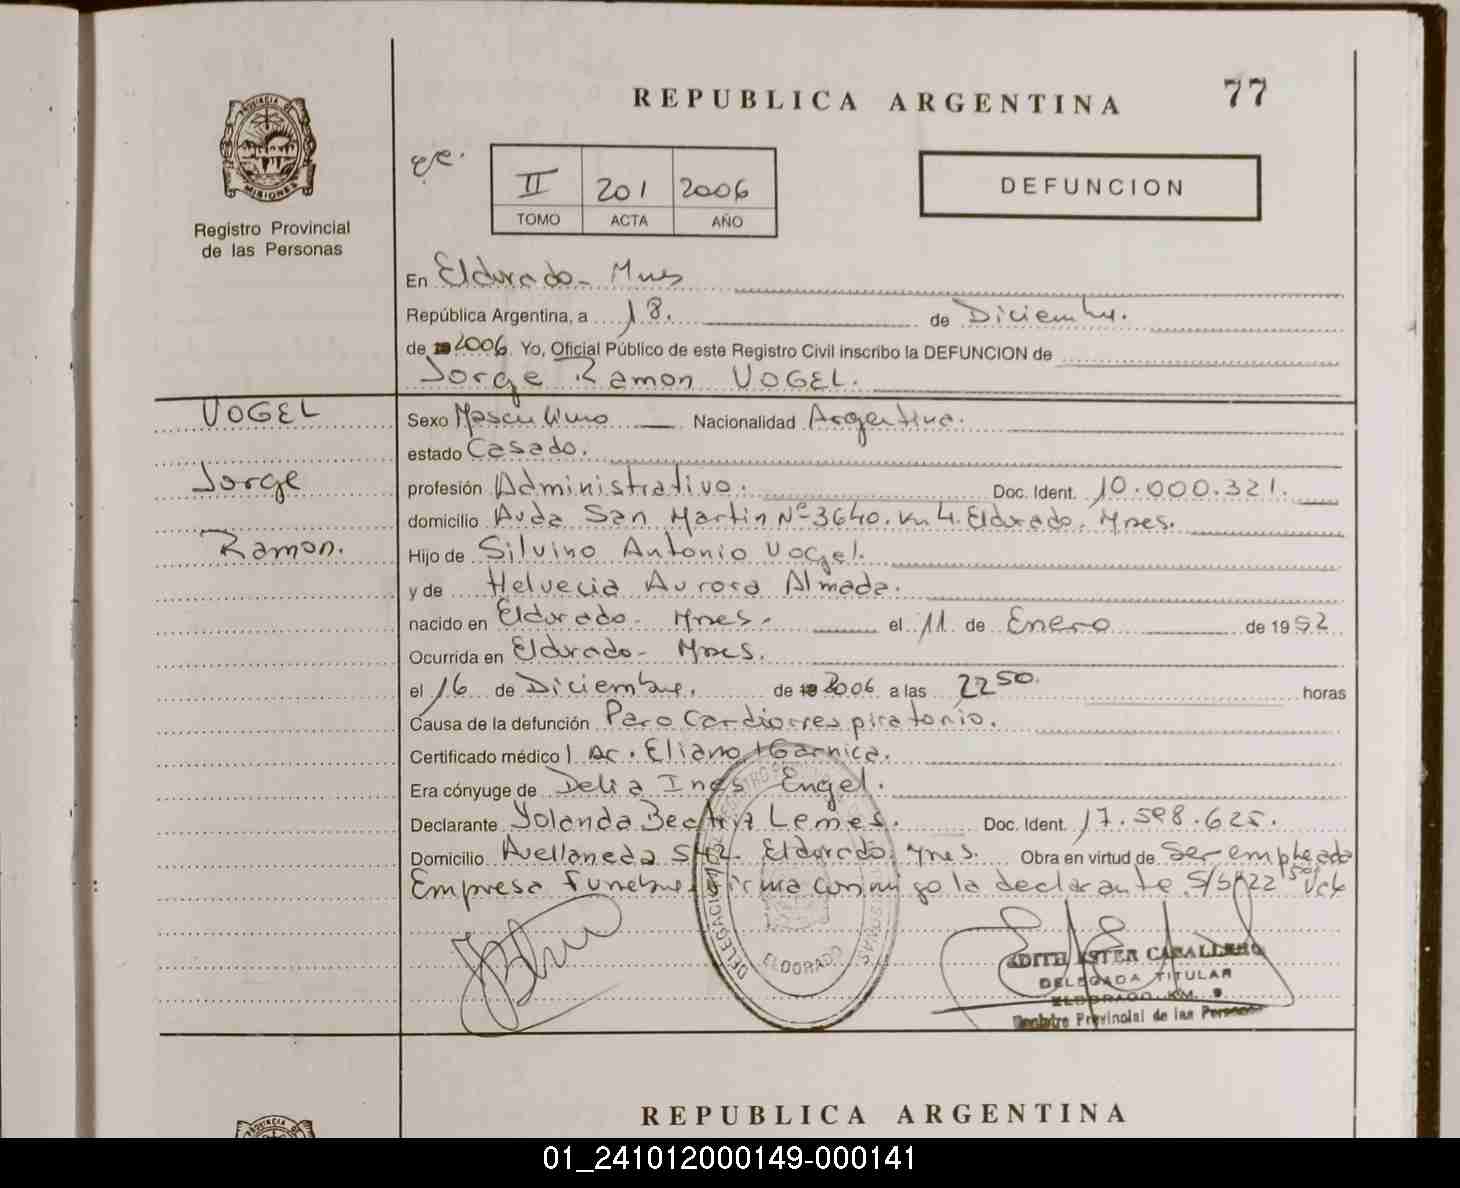 REPUBLICA ARGENTINA
77
PROVINCIA DE
MISIONES
Registro Provincial
de las Personas
II 201 2006
TOMO ACTA AÑO
DEFUNCION
En Eldorado - Mnes
República Argentina, a 18. de Diciembre.
de 2006. Yo, Oficial Público de este Registro Civil inscribo la DEFUNCION de
Jorge Ramon VOGEL.
VOGEL
Jorge
Ramon.
Sexo Masculino Nacionalidad Argentina.
estado Casado.
profesión Administrativo. Doc. Ident. 10.000.321.
domicilio Avda San Martin Nº 3640. Km 4. Eldorado. Mnes.
Hijo de Silvino Antonio Vogel.
y de Helvecia Aurora Almada.
nacido en Eldorado - Mnes. el 11 de Enero de 1952
Ocurrida en Eldorado - Mnes.
el 16 de Diciembre. de 2006 a las 22 50. horas
Causa de la defunción Paro Cardiorrespiratorio.
Certificado médico Eliano Garnica.
Era cónyuge de Delia Ines Engel.
Declarante Yolanda Beatriz Lemes. Doc. Ident. 17.598.625.
Domicilio Avellaneda Eldorado. Mnes. Obra en virtud de Ser empleada
Empresa Funebre firma conmigo la declarante.
ELDORADO
EDITH ESTER CABALLERO
DELEGADA TITULAR
ELDORADO KM. 9
Registro Provincial de las Personas
REPUBLICA ARGENTINA
PROVINCIA DE
01_241012000149-000141